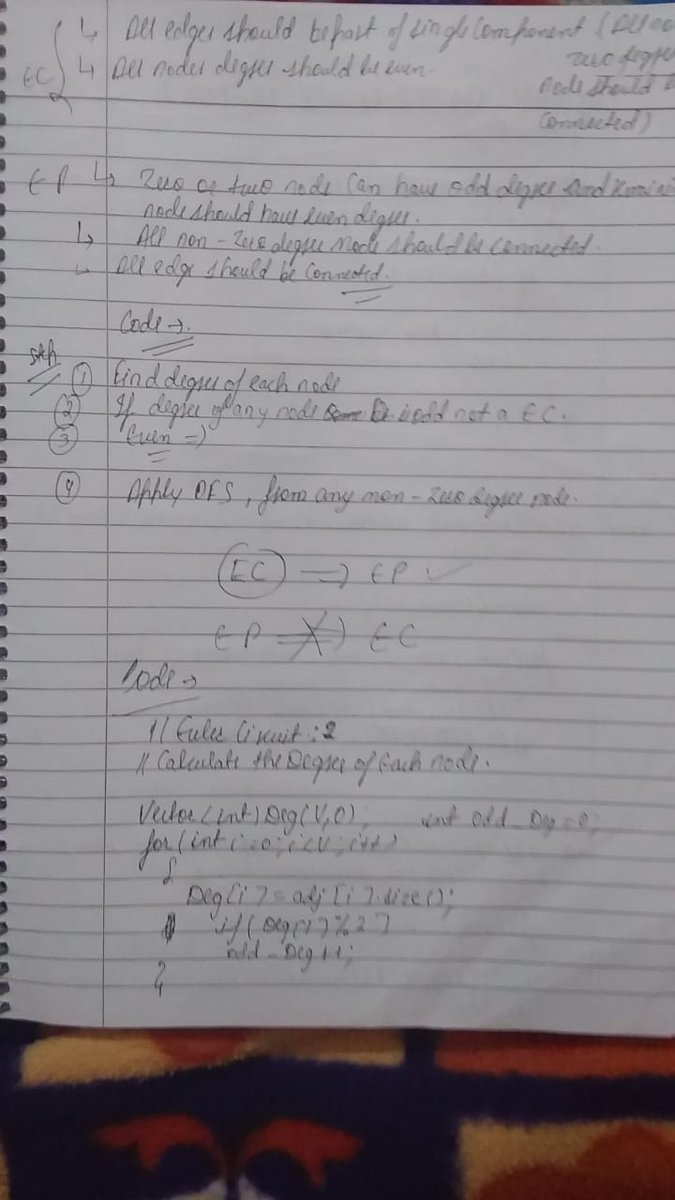 EC
↳ All edges should be part of single component (All no
zero degree
↳ All nodes degree should be even.
node should
connected)
EP ↳ Zero or two node can have odd degree and remaini
node should have even degree.
↳ All non-zero degree node should be connected.
↳ All edge should be connected.
Code →
① Find degree of each node
② If degree of any node is odd not a EC.
③ Even ⇒
④ Apply DFS, from any non-zero degree node.
EC ⇒ EP ✓
EP ⇏ EC
Code →
// Euler Circuit : 2
// Calculate the Degree of Each node.
Vector<int>Deg(V,0); int odd_Deg=0;
for(int i=0; i<V; i++)
{
Deg[i] = adj[i].size();
if(Deg[i]%2)
odd_Deg++;
}